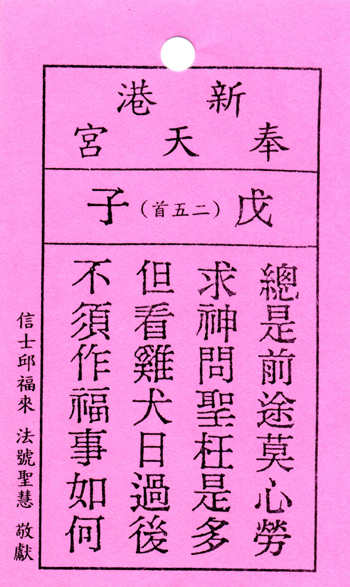 新港
奉天宮
戊（二五首）子
總是前途莫心勞
求神問聖枉是多
但看雞犬日過後
不須作福事如何
信士邱福來 法號聖慧 敬獻